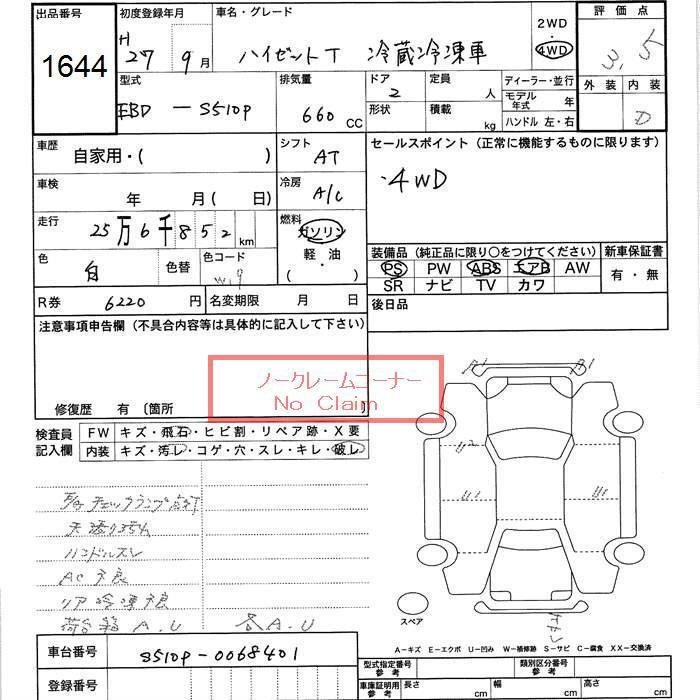 出品番号 初度登録年月 車名・グレード 2WD・4WD 評価点
1644 H 27 9月 ハイゼットT 冷蔵冷凍車 3.5
型式 排気量 ドア 定員 ディーラー・並行 外装 内装
EBD - S510P 660 CC 2 人 モデル年式 年 D
形状 積載 kg ハンドル 左・右
車歴 自家用・( ) シフト AT セールスポイント (正常に機能するものに限ります)
車検 年 月 ( 日) 冷房 A/C ・4WD
走行 25万6千852 km 燃料 ガソリン・軽油・( )
色 白 色替 色コード W19
装備品 (純正品に限り○をつけてください) 新車保証書
PS PW ABS エアB AW 有・無
SR ナビ TV カワ
R券 6220円 名変期限 月 日 後日品
注意事項申告欄 (不具合内容等は具体的に記入して下さい)
ノークレームコーナー
No Claim
修復歴 有 〔箇所
検査員記入欄 FW キズ・飛石・ヒビ割・リペア跡・X要
内装 キズ・汚レ・コゲ・穴・スレ・キレ・破レ
A1 A1
U2
U1 U1
チェックランプ点灯
ハンドルスレ
AC不良
リア冷凍不良
荷台箱 A.U 各A.U
スペア
A-キズ E-エクボ U-凹み W-補修跡 S-サビ C-腐食 XX-交換済
車台番号 S510P-0068401 型式指定番号 参考 類別区分番号 参考
登録番号 車庫証明用 参考 長さ cm 幅 cm 高さ cm